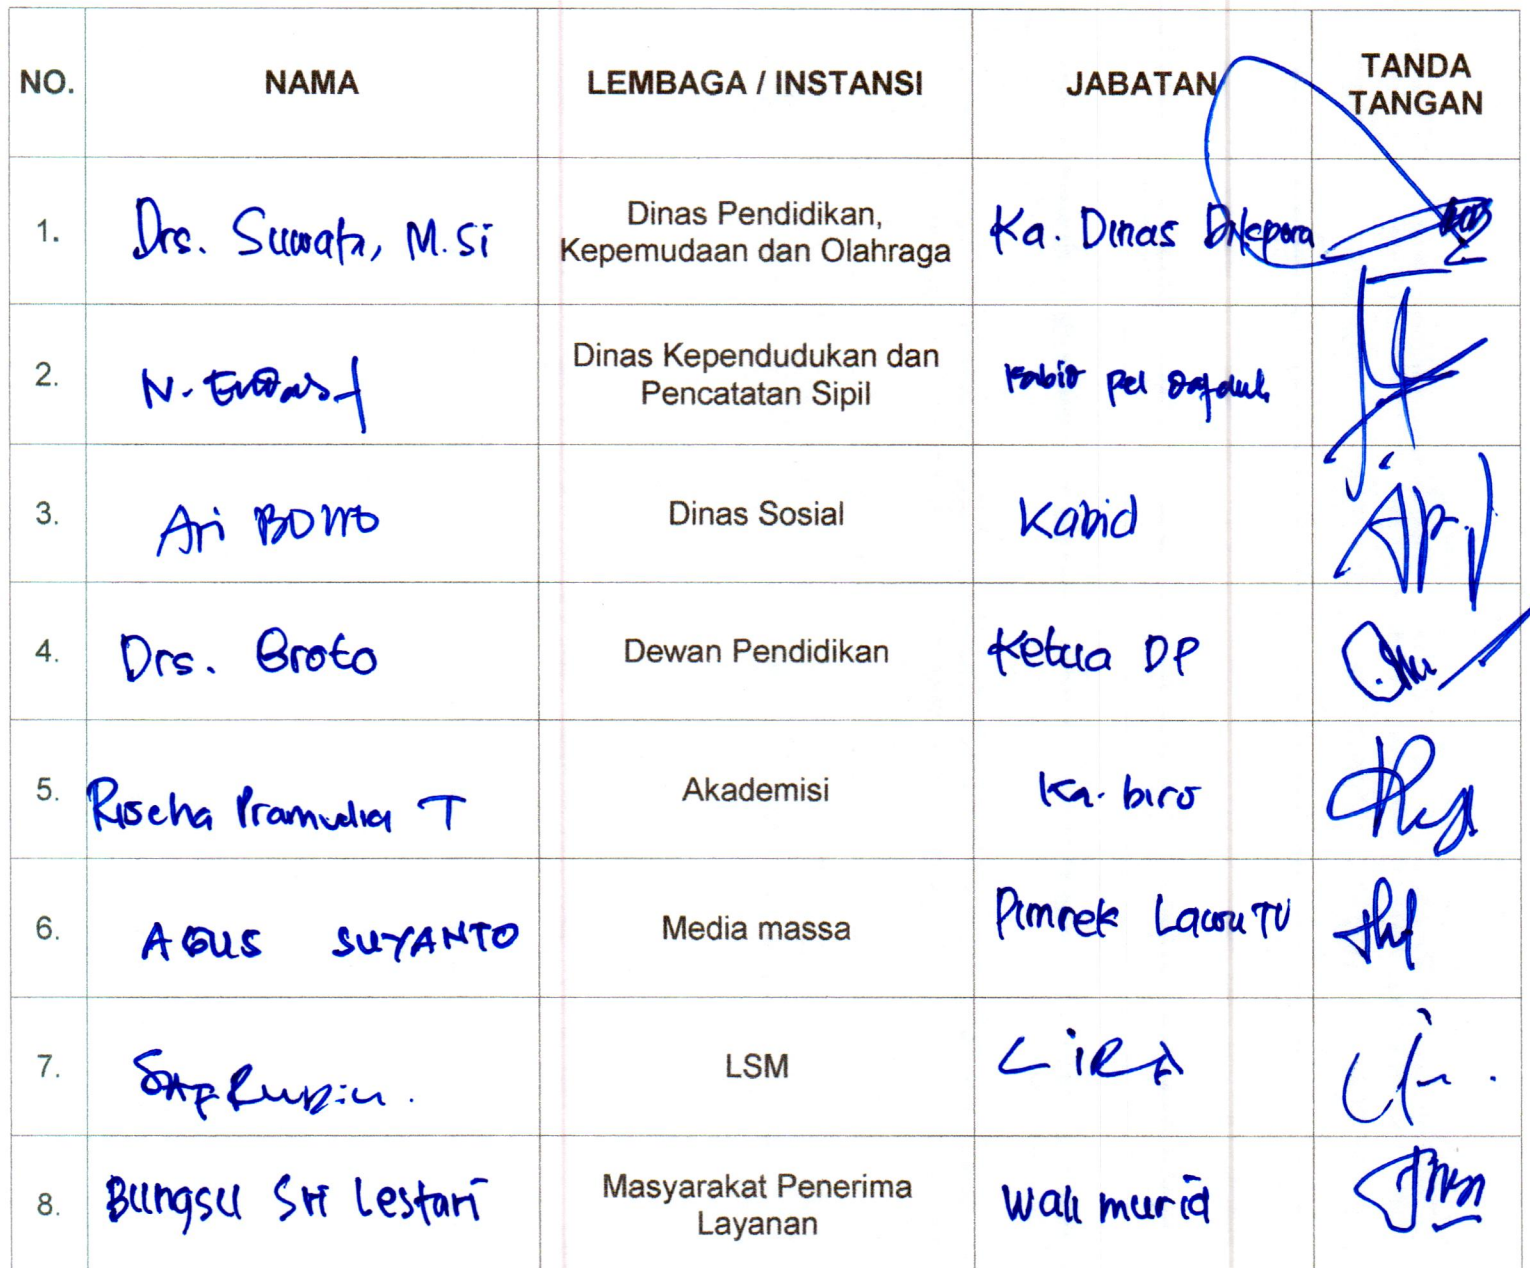 NO. NAMA LEMBAGA / INSTANSI JABATAN TANDA
TANGAN
1. Drs. Suwata, M.Si Dinas Pendidikan,
Kepemudaan dan Olahraga Ka. Dinas Dikepora
2. N. Dinas Kependudukan dan
Pencatatan Sipil Kabid pel
3. Ari Dinas Sosial Kabid
4. Drs. Broto Dewan Pendidikan Ketua DP
5. Rischa Pramudia T Akademisi Ka. biro
6. AGUS SUYANTO Media massa Pimrek Lawu TV
7. LSM LiRA
8. Bungsu Sri Lestari Masyarakat Penerima
Layanan Wali murid